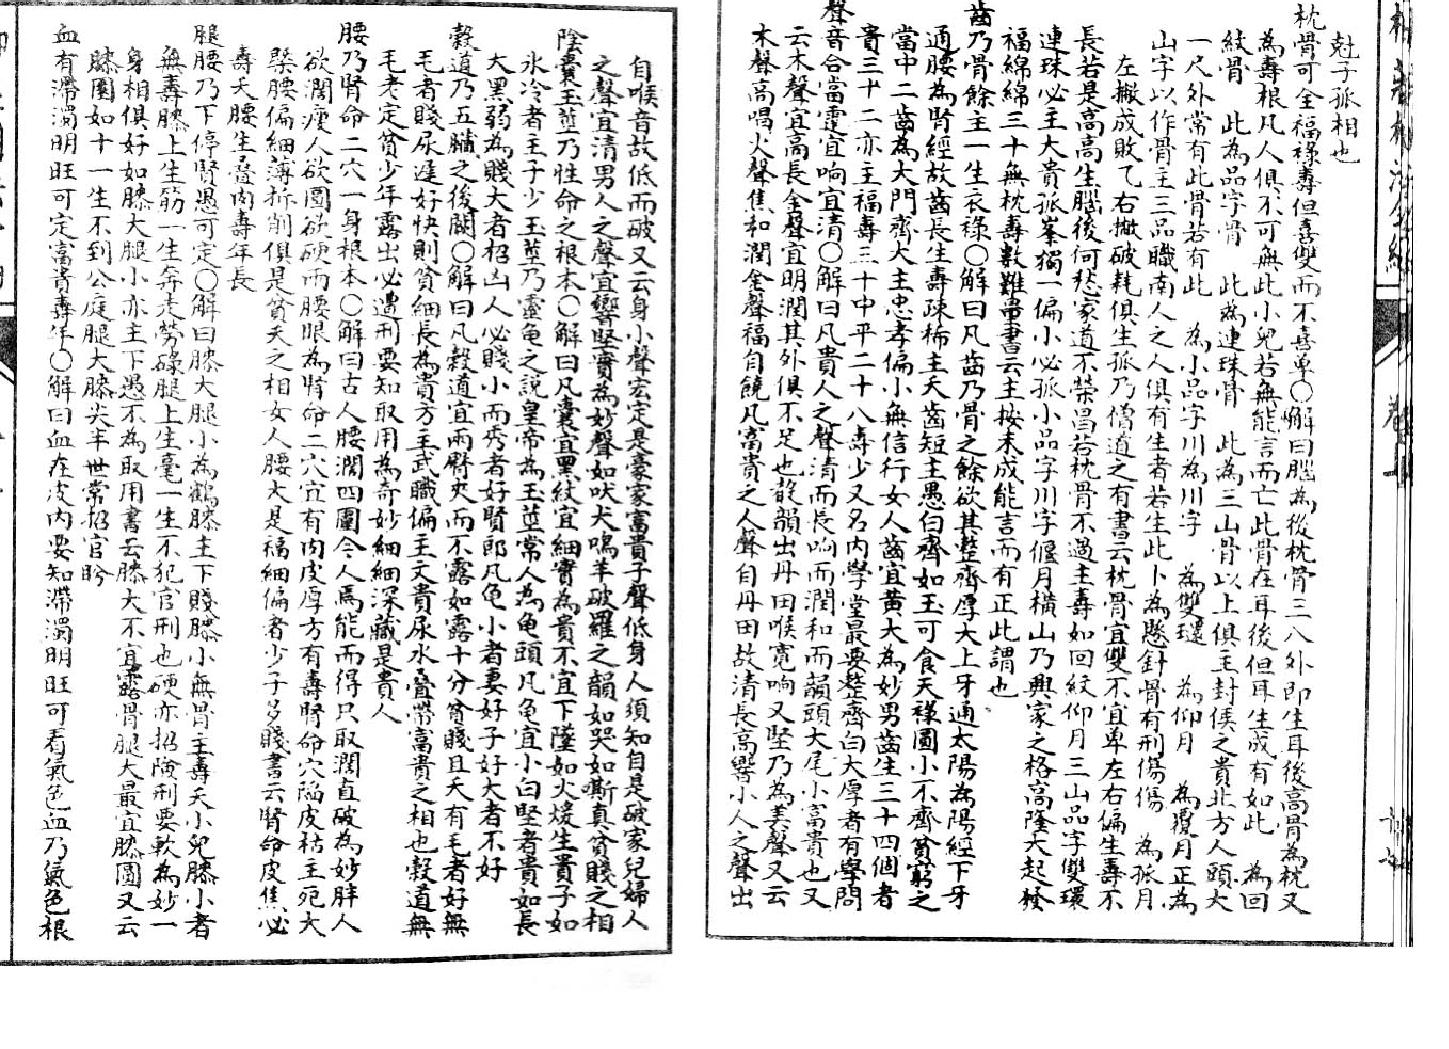 尅子孤相也
枕骨可全福祿壽但喜雙而不喜单○解曰腦為後枕骨三八外即生耳後高骨為枕又
為壽根凡人俱不可無此小兒若無能言而亡此骨在耳後但耳生成有如此 為回
紋骨 此為品字骨 此為連珠骨 此為三山骨以上俱主封侯之貴北方人頭大
一尺外常有此骨若有此 為小品字川為川字 為雙環 為仰月 為覆月正為
山字以作骨主三品職南人之人俱有生者若生此卜為懸針骨有刑傷傷 為孤月
左撇成敗乀右撇破耗俱生孤乃僧道之有書云枕骨宜雙不宜单左右偏生壽不
長若是高高生腦後何愁家道不榮昌若枕骨不過主壽如回紋仰月三山品字雙環
連珠必主大貴孤峯獨一偏小必孤小品字川字偃月橫山乃興家之格高隆大起發
福綿綿三十無枕壽數難書云主按未成能言而有正此謂也
齒乃骨餘主一生衣祿○解曰凡齒乃骨之餘欲其整齊厚大上牙通太陽為陽經下牙
通腰為腎經故齒長生壽疎稀主夭齒短主愚白齊如玉可食天祿圓小不齊貧窮之
當中二齒為大門齊大主忠孝偏小無信行女人齒宜黄大為妙男齒生三十四個者
貴三十二亦主福壽三十中平二十八壽少又名內學堂最要整齊白大厚者有學問
聲音合當靈宜响宜清○解曰凡貴人之聲清而長响而潤和而韻頭大尾小富貴也又
云木聲宜高長金聲宜明潤其外俱不足也韻出丹田喉寬响又堅乃為美聲又云
木聲高唱火聲焦和潤金聲福自饒凡富貴之人聲自丹田故清長高響小人之聲出
自喉音故低而破又云身小聲宏定是豪家富貴子聲低身人須知自是破家兒婦人
之聲宜清男人之聲宜響堅實為妙聲如吠犬鳴羊破羅之韻如哭如嘶真貧賤之相
陰囊玉莖乃性命之根本○解曰凡囊宜黑紋宜細實為貴不宜下墜如火煖生貴子如
氷冷者主子少玉莖乃靈龜之說皇帝為玉莖常人為龜頭凡龜宜小白堅者貴如長
大黑弱為賤大者招凶人必賤小而秀者好賢郎凡龜小者妻好子好大者不好
榖道乃五臟之後關○解曰凡榖道宜兩臀夾而不露如露十分貧賤且夭有毛者好無
毛者賤尿遲好快則貧細長為貴方主武職偏主文貴尿水叠帶富貴之相也榖道無
毛老定貧少年露出必遭刑要知取用為奇妙細細深藏是貴人
腰乃腎命二穴一身根本○解曰古人腰濶四圍今人馬能而得只取濶直破為妙胖人
欲濶瘦人欲圓欲硬而腰眼為腎命二穴宜有肉皮厚方有壽腎命穴陷皮枯主死大
槩腰偏細薄折削俱是貧夭之相女人腰大是福細偏者少子多賤書云腎命皮焦必
壽夭腰生叠肉壽年長
腿腰乃下停腎愚可定○解曰膝大腿小為鶴膝主下賤膝小無骨主壽夭小兒膝小者
無壽膝上生筋一生奔走勞碌腿上生毫一生不犯官刑也硬亦招險刑要軟為妙一
身相俱好如膝大腿小亦主下愚不為取用書云膝大不宜露骨腿大最宜膝圓又云
膝圓如十一生不到公庭腿大膝尖半世常招官
血有滯濁明旺可定富貴壽年○解曰血在皮內要知滯濁明旺可看氣色血乃氣色根